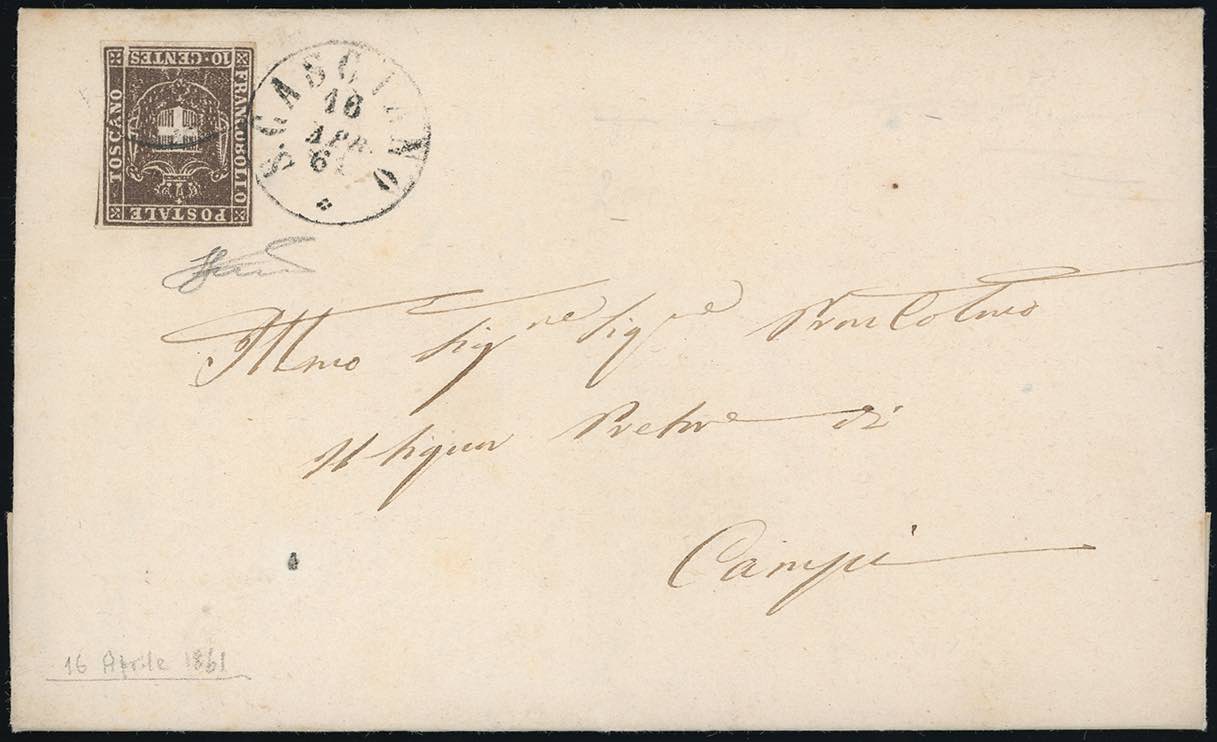 FRANCOBOLLO
POSTALE
TOSCANO
10·CENTES
S. CASCIANO
16
APR
61
Illmo Sig.re Sig.re Pron Colmo
Il Signor Pretore di
Campi
16 Aprile 1861